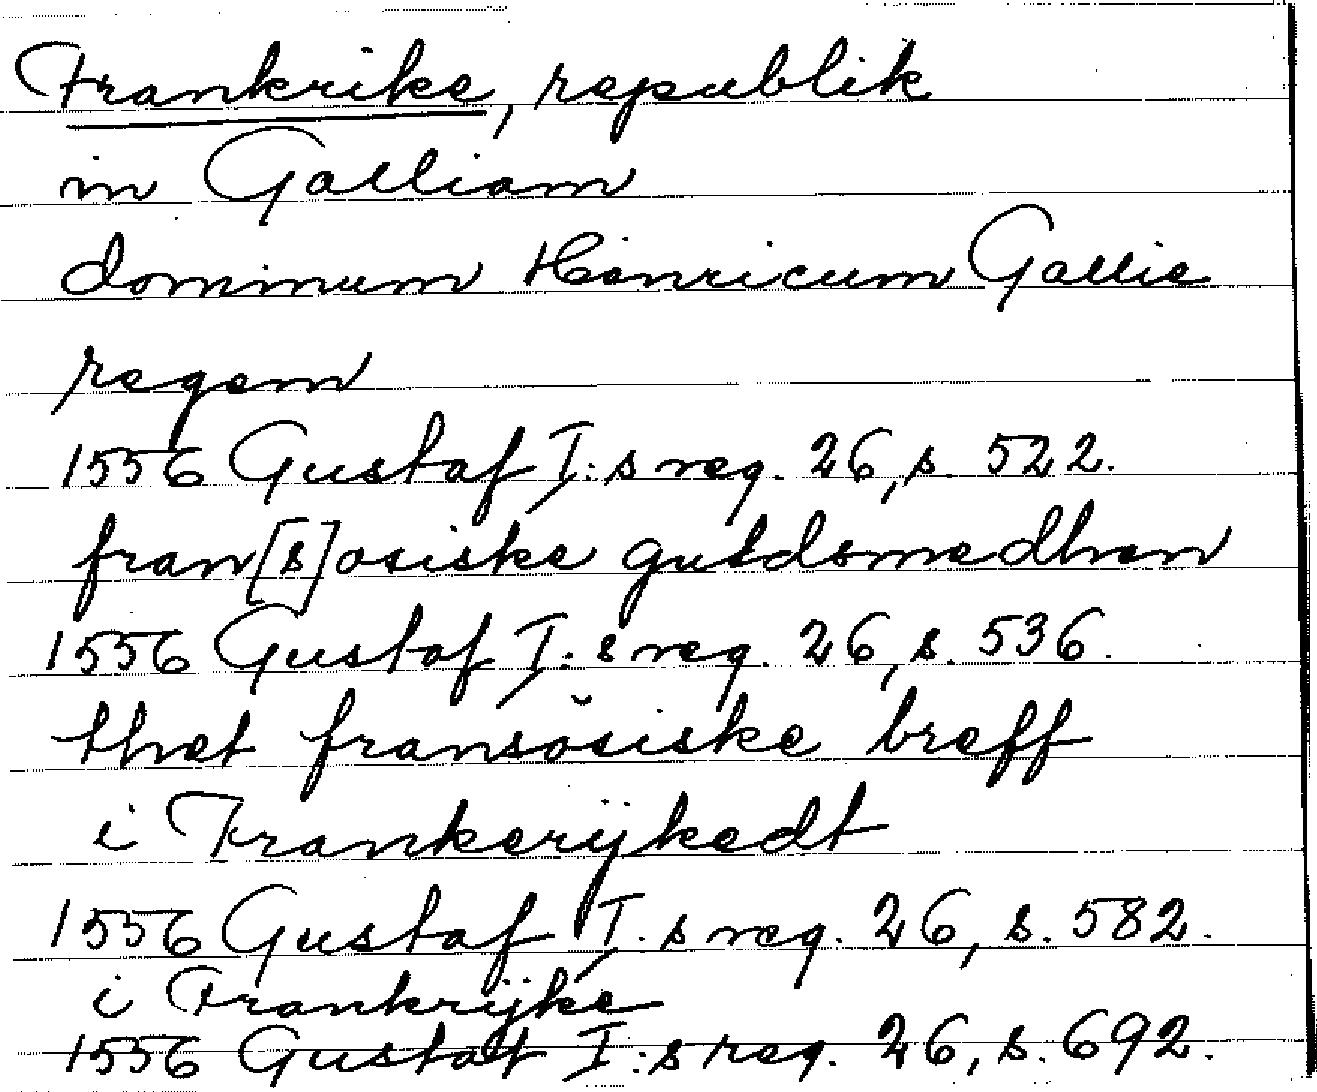 Frankrike, republik
in Galliam
dominum Henricum Gallie
regem
1556 Gustaf I:s reg. 26, s. 522.
fran[s]osiske guldsmedhen
1556 Gustaf I:s reg. 26, s. 536.
thet fransösiske breff
i Frankerijkedt
1556 Gustaf I.s reg. 26, s. 582.
i Frankrijke
1556 Gustaf I:s reg. 26, s. 692.